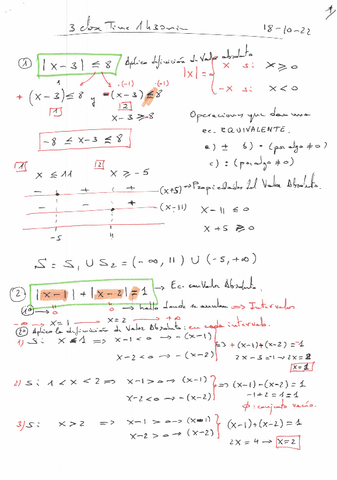 3 clase Time 1h33min 18-10-22
1
① |x-3| ≤ 8 Aplico definición de Valor absoluto
|x| = { x si x ≥ 0
-x si x < 0
+(x-3) ≤ 8 y -(x-3) ≤ 8 ·(-1)
1 2
x-3 ≥ -8
-8 ≤ x-3 ≤ 8
Operaciones que dan una
ec. EQUIVALENTE.
a) ± b) · (por algo ≠ 0)
c) : (por algo ≠ 0)
1 x ≤ 11 2 x ≥ -5
- + + (x+5) → Propiedades del Valor Absoluto.
- - + (x-11) x-11 ≤ 0
-5 4 x+5 ≥ 0
S = S₁ ∪ S₂ = (-∞, 11) ∪ (-5, +∞)
② |x-1| + |x-2| = 1 → Ec. con Valor Absoluto.
1º hallo donde se anulan ⇒ Intervalos
-∞ x=1 x=2 +∞
2º Aplico la definición de Valor Absoluto: en cada intervalo.
1) Si x ≤ 1 ⇒ x-1 < 0 → -(x-1)
x-2 < 0 → -(x-2)
⇒ +(x-1)+(x-2) = -1
2x-3 = -1 → 2x = 2
x=1
2) Si 1 < x < 2 ⇒ x-1 > 0 → (x-1)
x-2 < 0 → -(x-2)
⇒ (x-1)-(x-2) = 1
-1+2 = 1 = 1
∅: conjunto vacío.
3) Si x > 2 ⇒ x-1 > 0 → (x-1)
x-2 > 0 → (x-2)
(x-1)+(x-2) = 1
2x = 4 → x=2